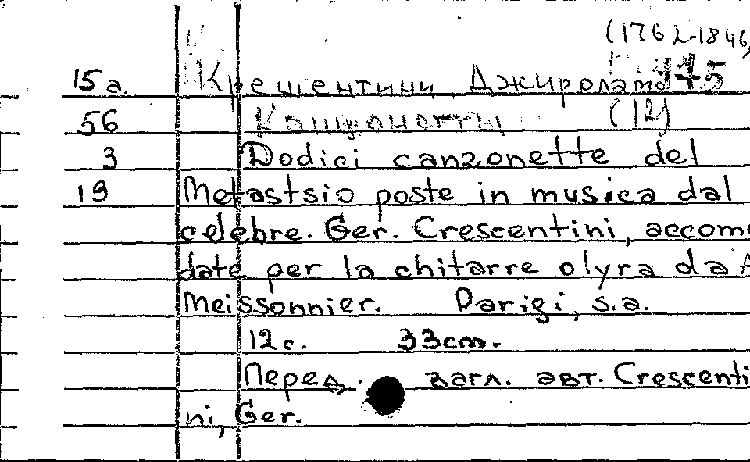 (1762-1846,
15a. Крешентини, Джироламо 175
56 Канцонетты (12)
3 Dodici canzonette del
19 Metastsio poste in musica dal
celebre. Ger. Crescentini, accom
date per la chitarre o lyra da A
Meissonnier. Parigi, s.a.
12с. 33cm.
Перед. загл. авт. Crescenti
ni, Ger.